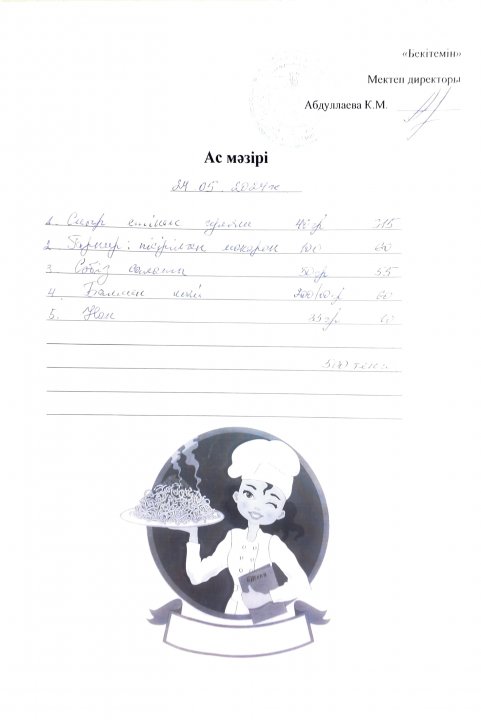 «Бекітемін»
Мектеп директоры
Абдуллаева К.М.
Ас мәзірі
24. 05. 2024ж
1. Сиыр етінен гуляш 315
2. Гарнир: пісірілген макарон 100 60
3. Сәбіз салаты 55
4. Балмен шәй 200/10гр 60
5. Нан 35гр 10
500 теңге